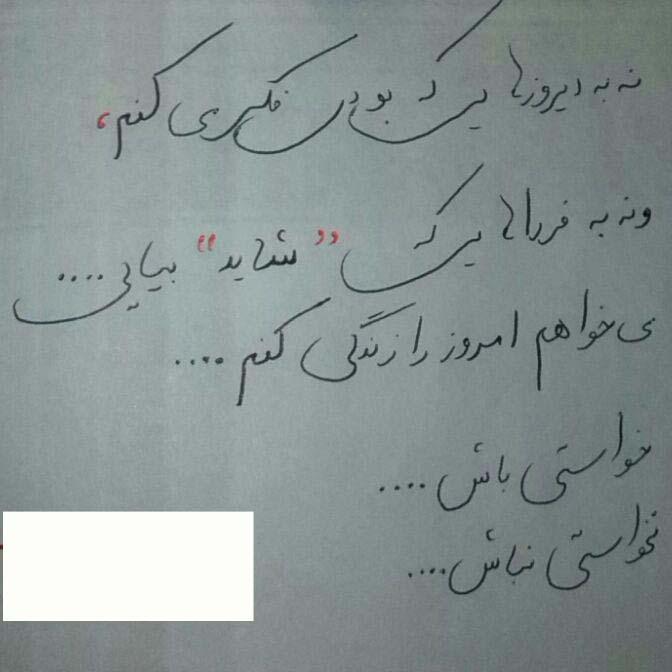 نه به دیروزهایی که بودی فکر می کنم،
و نه به فرداهایی که "شاید" بیایی....
می خواهم امروز را زندگی کنم ....
خواستی باش ....
نخواستی نباش ....